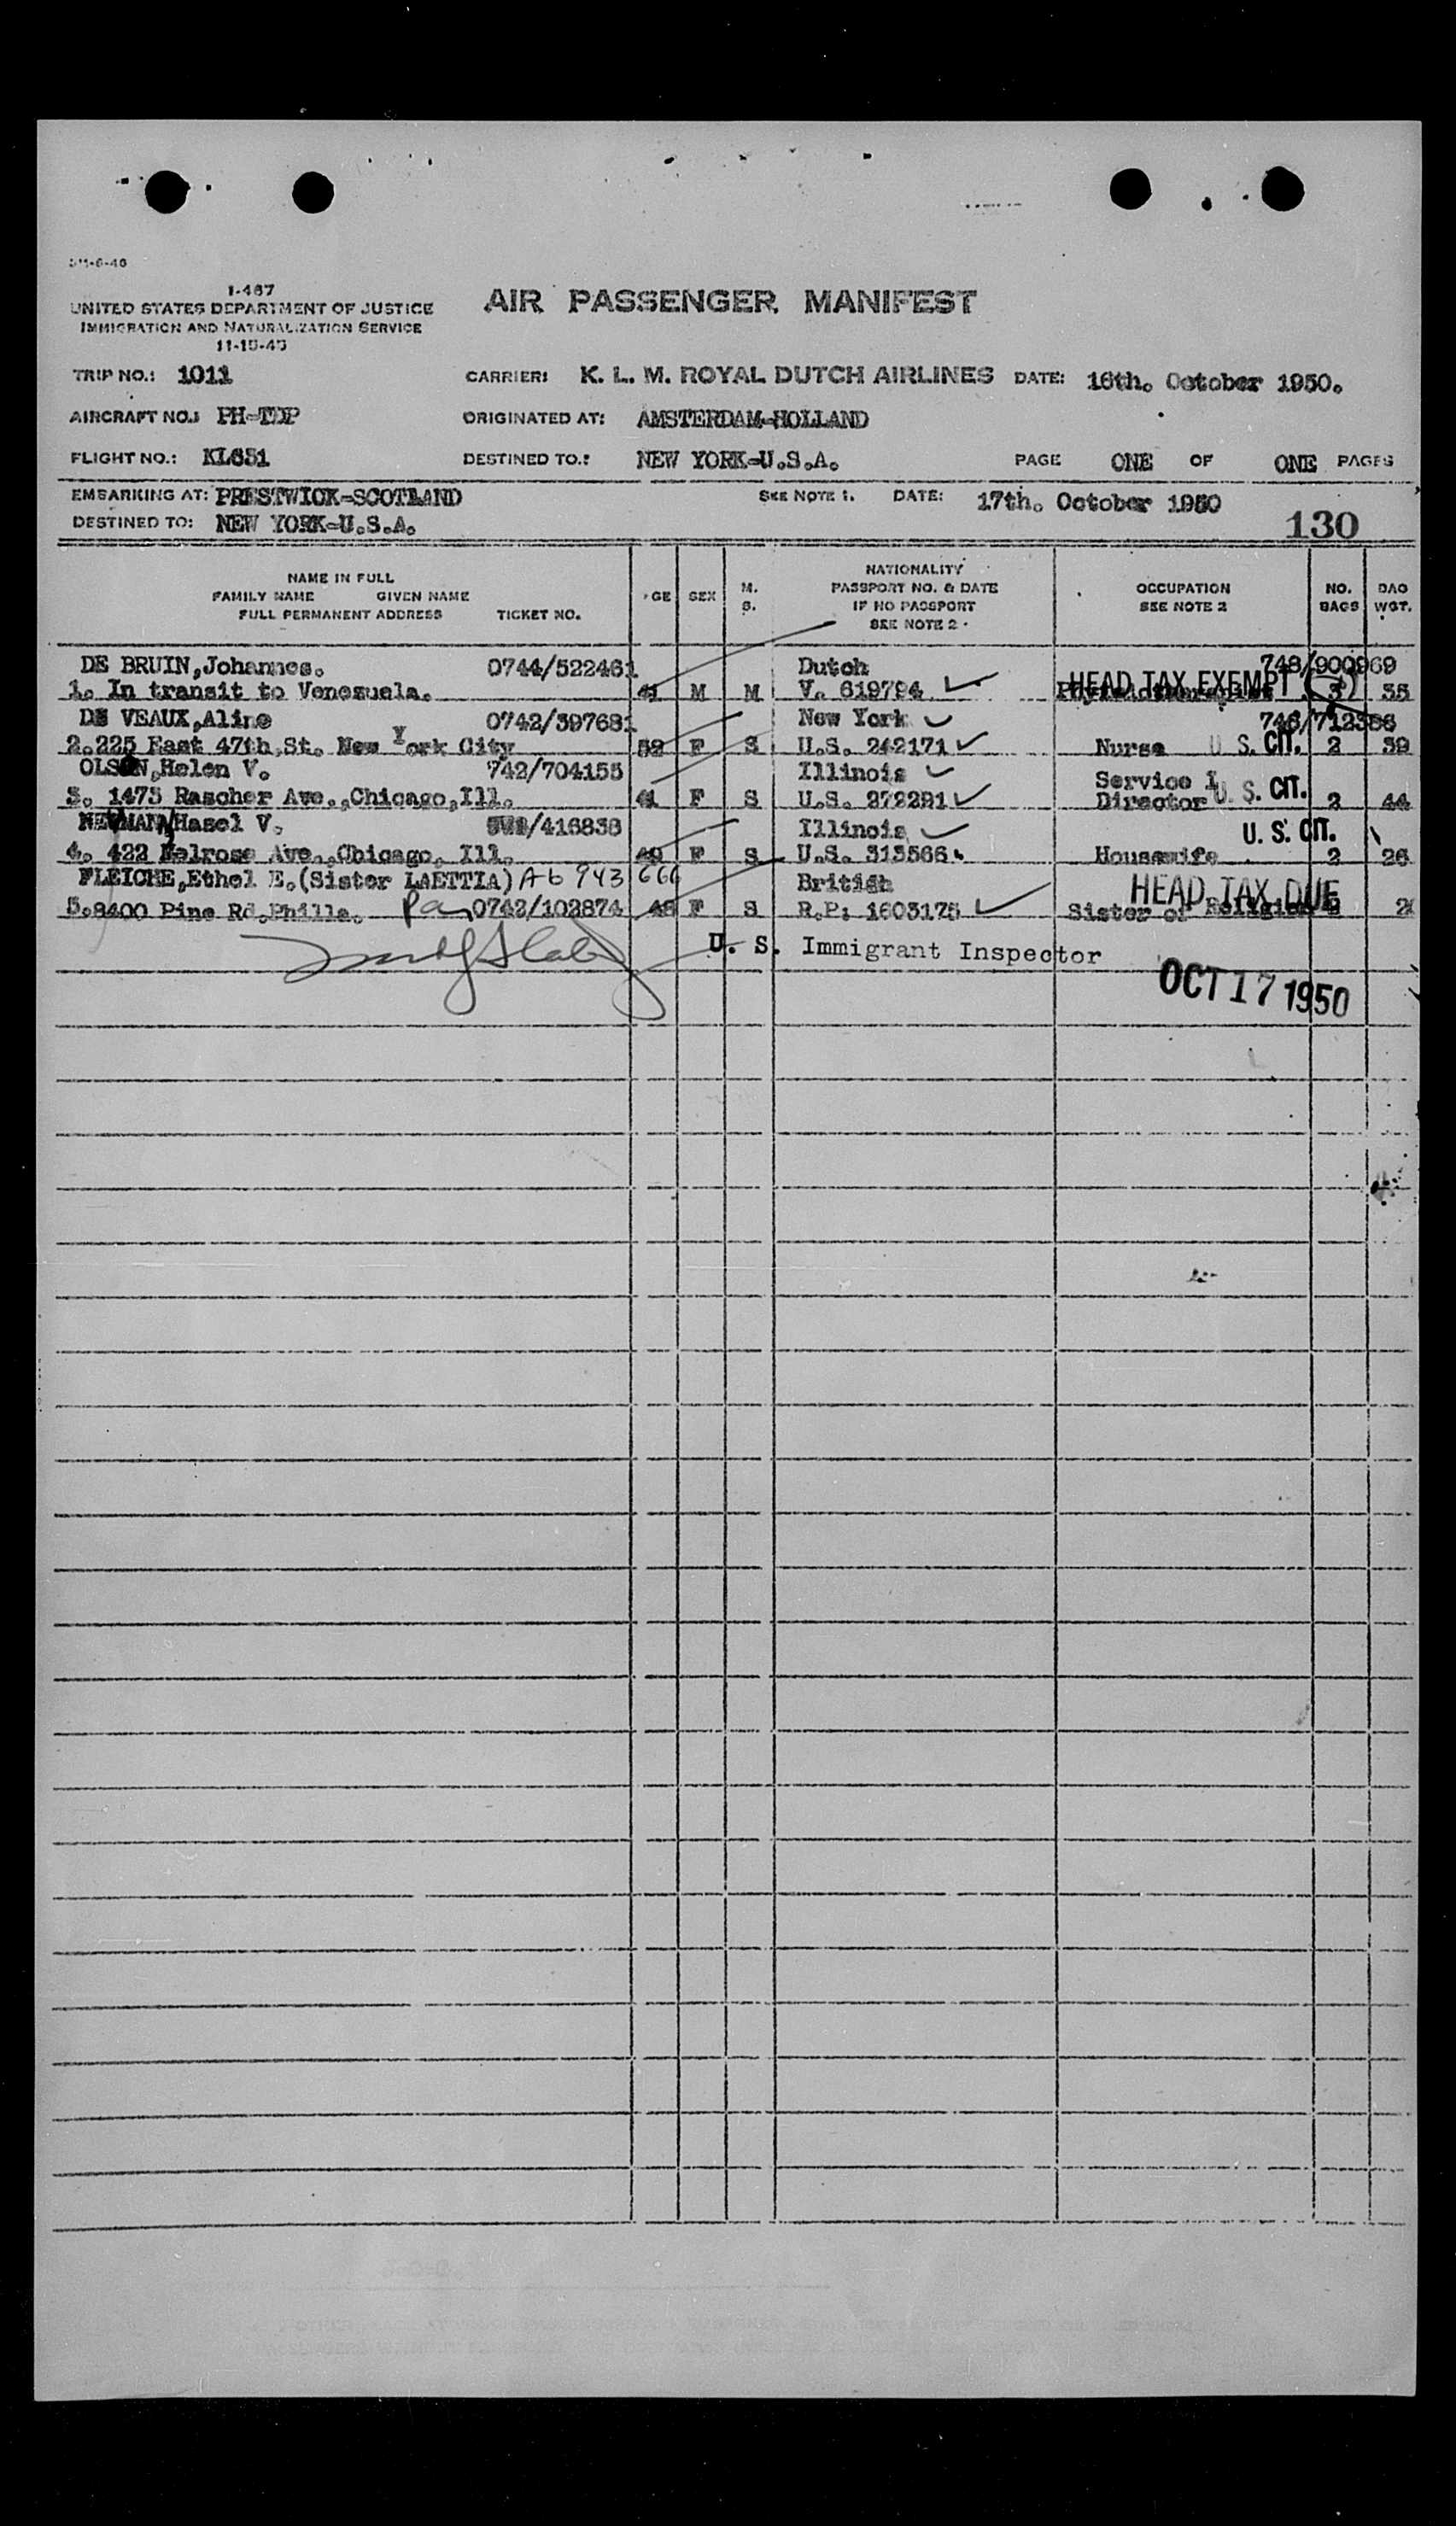 I-467
UNITED STATES DEPARTMENT OF JUSTICE
IMMIGRATION AND NATURALIZATION SERVICE
AIR PASSENGER MANIFEST
TRIP NO.: 1011 CARRIER: K. L. M. ROYAL DUTCH AIRLINES DATE: 16th. October 1950.
AIRCRAFT NO.: PH-TDP ORIGINATED AT: AMSTERDAM-HOLLAND
FLIGHT NO.: KL651 DESTINED TO.: NEW YORK-U.S.A. PAGE ONE OF ONE PAGES
EMBARKING AT: PRESTWICK-SCOTLAND SEE NOTE 1. DATE: 17th. October 1950
DESTINED TO: NEW YORK-U.S.A. 130
NAME IN FULL
FAMILY NAME GIVEN NAME
FULL PERMANENT ADDRESS TICKET NO.
GE SEX M. S.
NATIONALITY
PASSPORT NO. & DATE
IF NO PASSPORT
SEE NOTE 2
OCCUPATION
SEE NOTE 2
NO. BAGS
WGT.
DE BRUIN,Johannes. 0744/522461 Dutch 748/900969
1. In transit to Venezuela. 41 M M V. 619794 HEAD TAX EXEMPT 3 35
DE VEAUX,Aline 0742/397681 New York 746/712386
2.225 East 47th,St. New York City 52 F S U.S. 242171 Nurse U. S. CIT. 2 39
OLSON,Helen V. 742/704155 Illinois Service
3. 1473 Rascher Ave.,Chicago,Ill. 41 F S U.S. 272291 Director U. S. CIT. 2 44
NEWMAN,Hazel V. /416838 Illinois U. S. CIT.
4. 422 Melrose Ave.,Chicago, Ill. 49 F S U.S. 313566 Housewife 2 26
FLEICHE,Ethel E.(Sister LAETTIA) A6 943 666 British HEAD TAX DUE
5.8400 Pine Rd.Philla. 0742/102874 48 F S R.P: 1603175 Sister of Religion 2
U. S. Immigrant Inspector
OCT 17 1950